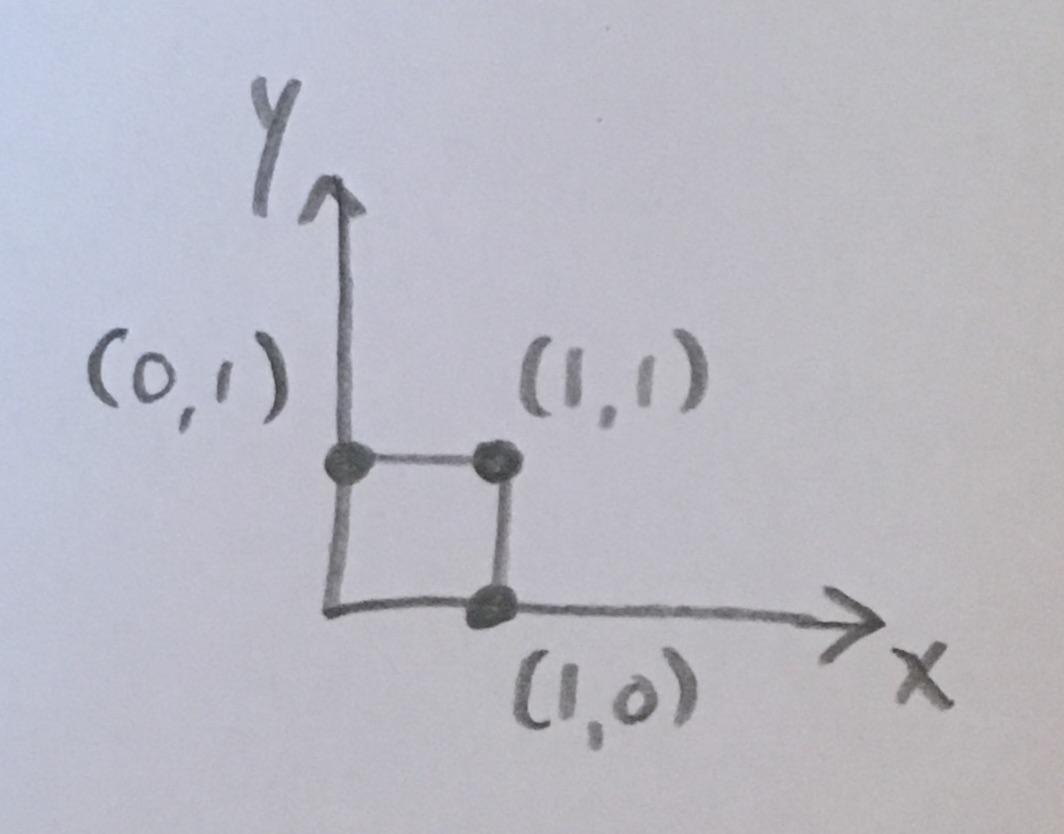 y
(0,1) (1,1)
(1,0)
x